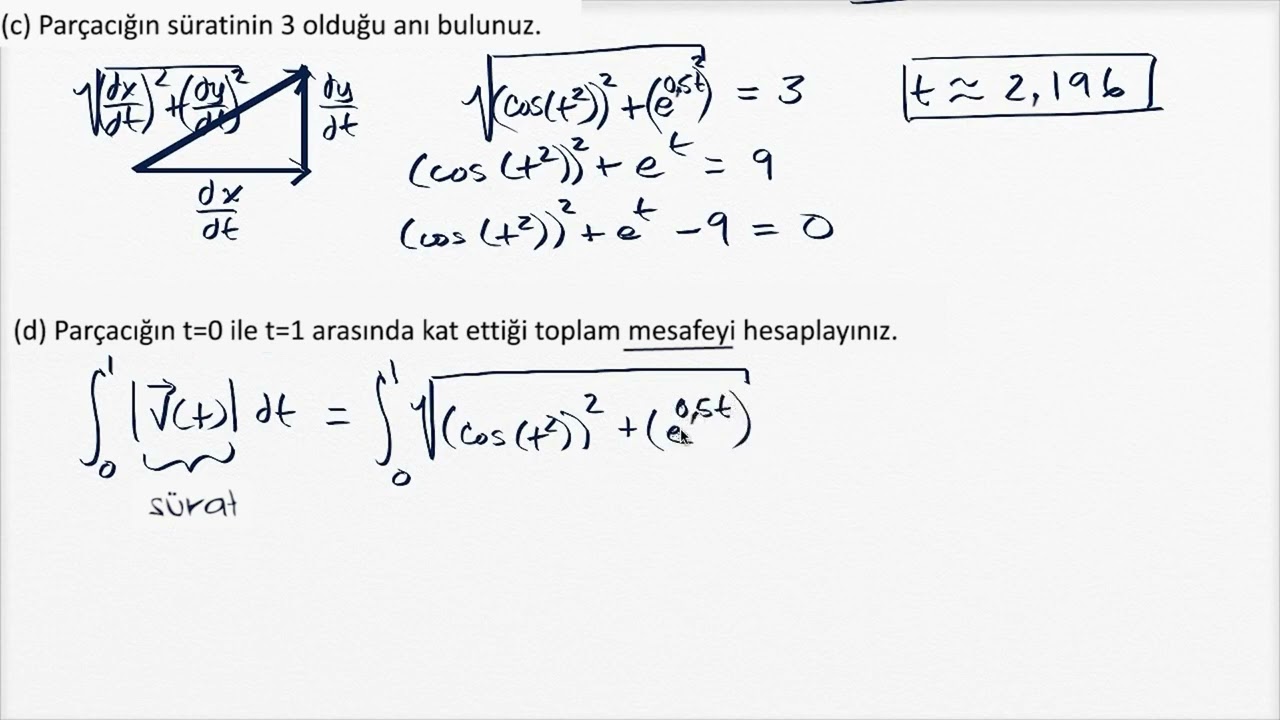 (c) Parçacığın süratinin 3 olduğu anı bulunuz.
√((dx/dt)² + (dy/dt)²) dy/dt √((cos(t²))² + (e^0,5t)²) = 3 t ≈ 2,196
dx/dt (cos(t²))² + e^t = 9
(cos(t²))² + e^t - 9 = 0
(d) Parçacığın t=0 ile t=1 arasında kat ettiği toplam mesafeyi hesaplayınız.
∫₀¹ |v⃗(t)| dt = ∫₀¹ √((cos(t²))² + (e^0,5t)
sürat